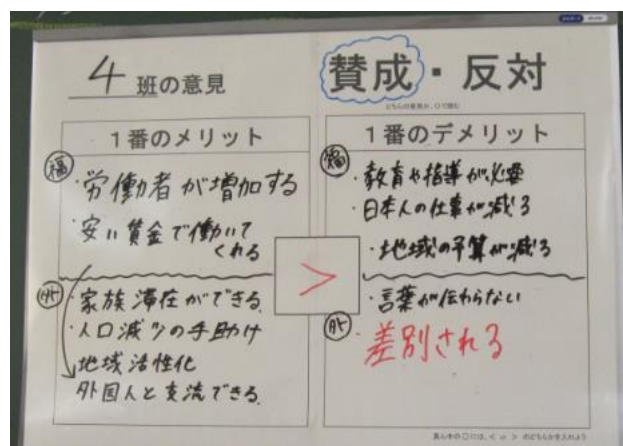 4班の意見
賛成・反対
どちらの意見か、○で囲む
1番のメリット
福
・労働者が増加する
・安い賃金で働いて
くれる
外
・家族滞在ができる
・人口減少の手助け
地域活性化
外国人と交流できる
>
1番のデメリット
福
・教育や指導が必要
・日本人の仕事が減る
・地域の予算が減る
外
・言葉が伝わらない
・差別される
真ん中の□には、< or > のどちらかを入れよう